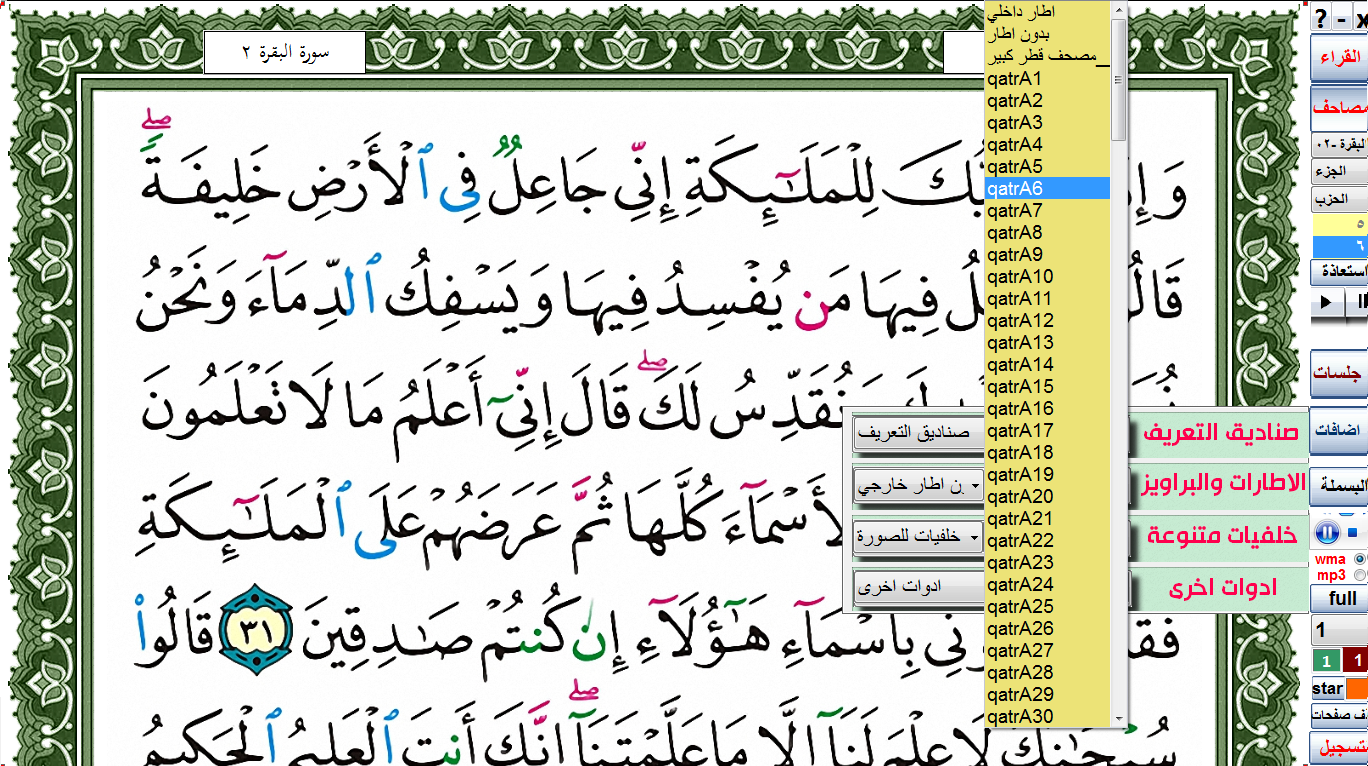 سورة البقرة ٢
وَإِذْ رَبُّكَ لِلْمَلَـٰٓئِكَةِ إِنِّى جَاعِلٌ فِى ٱلْأَرْضِ خَلِيفَةً ۖ
فِيهَا مَن يُفْسِدُ فِيهَا وَيَسْفِكُ ٱلدِّمَآءَ وَنَحْنُ
وَنُقَدِّسُ لَكَ ۖ قَالَ إِنِّىٓ أَعْلَمُ مَا لَا تَعْلَمُونَ
ٱلْأَسْمَآءَ كُلَّهَا ثُمَّ عَرَضَهُمْ عَلَى ٱلْمَلَـٰٓئِكَةِ
بِأَسْمَآءِ هَـٰٓؤُلَآءِ إِن كُنتُمْ صَـٰدِقِينَ ٣١ قَالُوا۟
سُبْحَـٰنَكَ لَا عِلْمَ لَنَآ إِلَّا مَا عَلَّمْتَنَآ ۖ إِنَّكَ أَنتَ ٱلْعَلِيمُ ٱلْحَكِيمُ
اطار داخلي
بدون اطار
مصحف قطر كبير_
qatrA1
qatrA2
qatrA3
qatrA4
qatrA5
qatrA6
qatrA7
qatrA8
qatrA9
qatrA10
qatrA11
qatrA12
qatrA13
qatrA14
qatrA15
qatrA16
qatrA17
qatrA18
qatrA19
qatrA20
qatrA21
qatrA22
qatrA23
qatrA24
qatrA25
qatrA26
qatrA27
qatrA28
qatrA29
qatrA30
صناديق التعريف
ن اطار خارجي
خلفيات للصورة
ادوات اخرى
صناديق التعريف
الاطارات والبراويز
خلفيات متنوعة
ادوات اخرى
? - x
القراء
مصاحف
البقرة -٠٢
الجزء
الحزب
٥
٦
استعاذة
جلسات
اضافات
البسملة
wma
mp3
full
1
1 1
star
ف صفحات
تسجيل